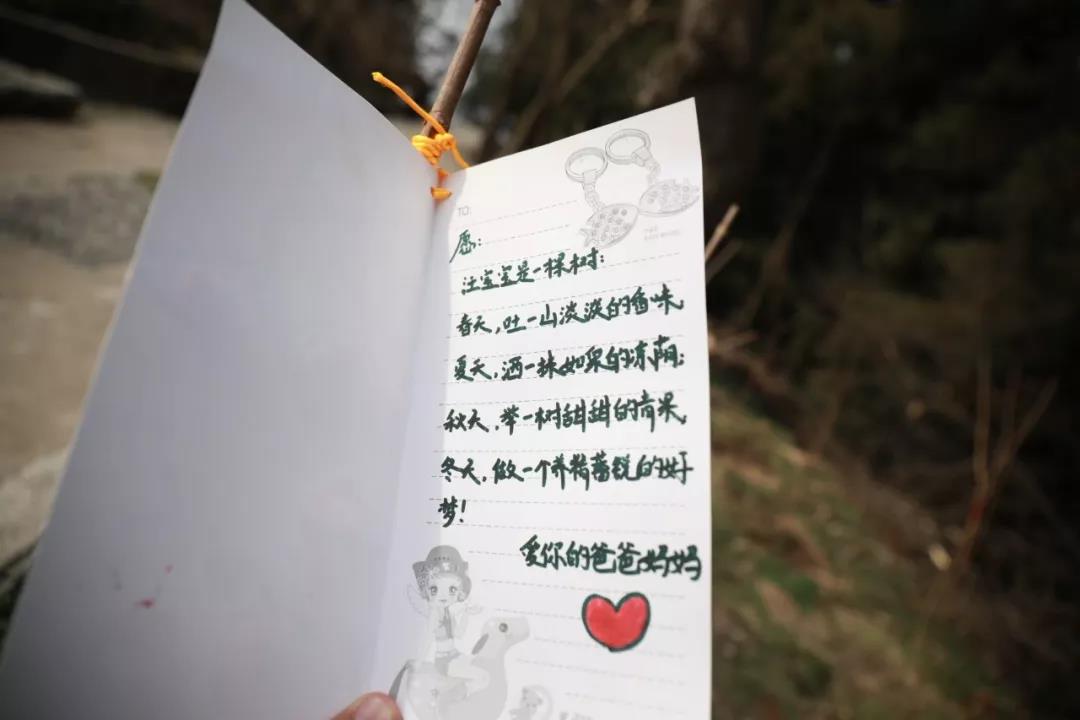 TO:
愿:
汪宝宝是一棵树:
春天,吐一山淡淡的香味,
夏天,洒一抹如泉的凉荫;
秋天,举一树甜甜的青果,
冬天,做一个养精蓄锐的好
梦!
爱你的爸爸妈妈